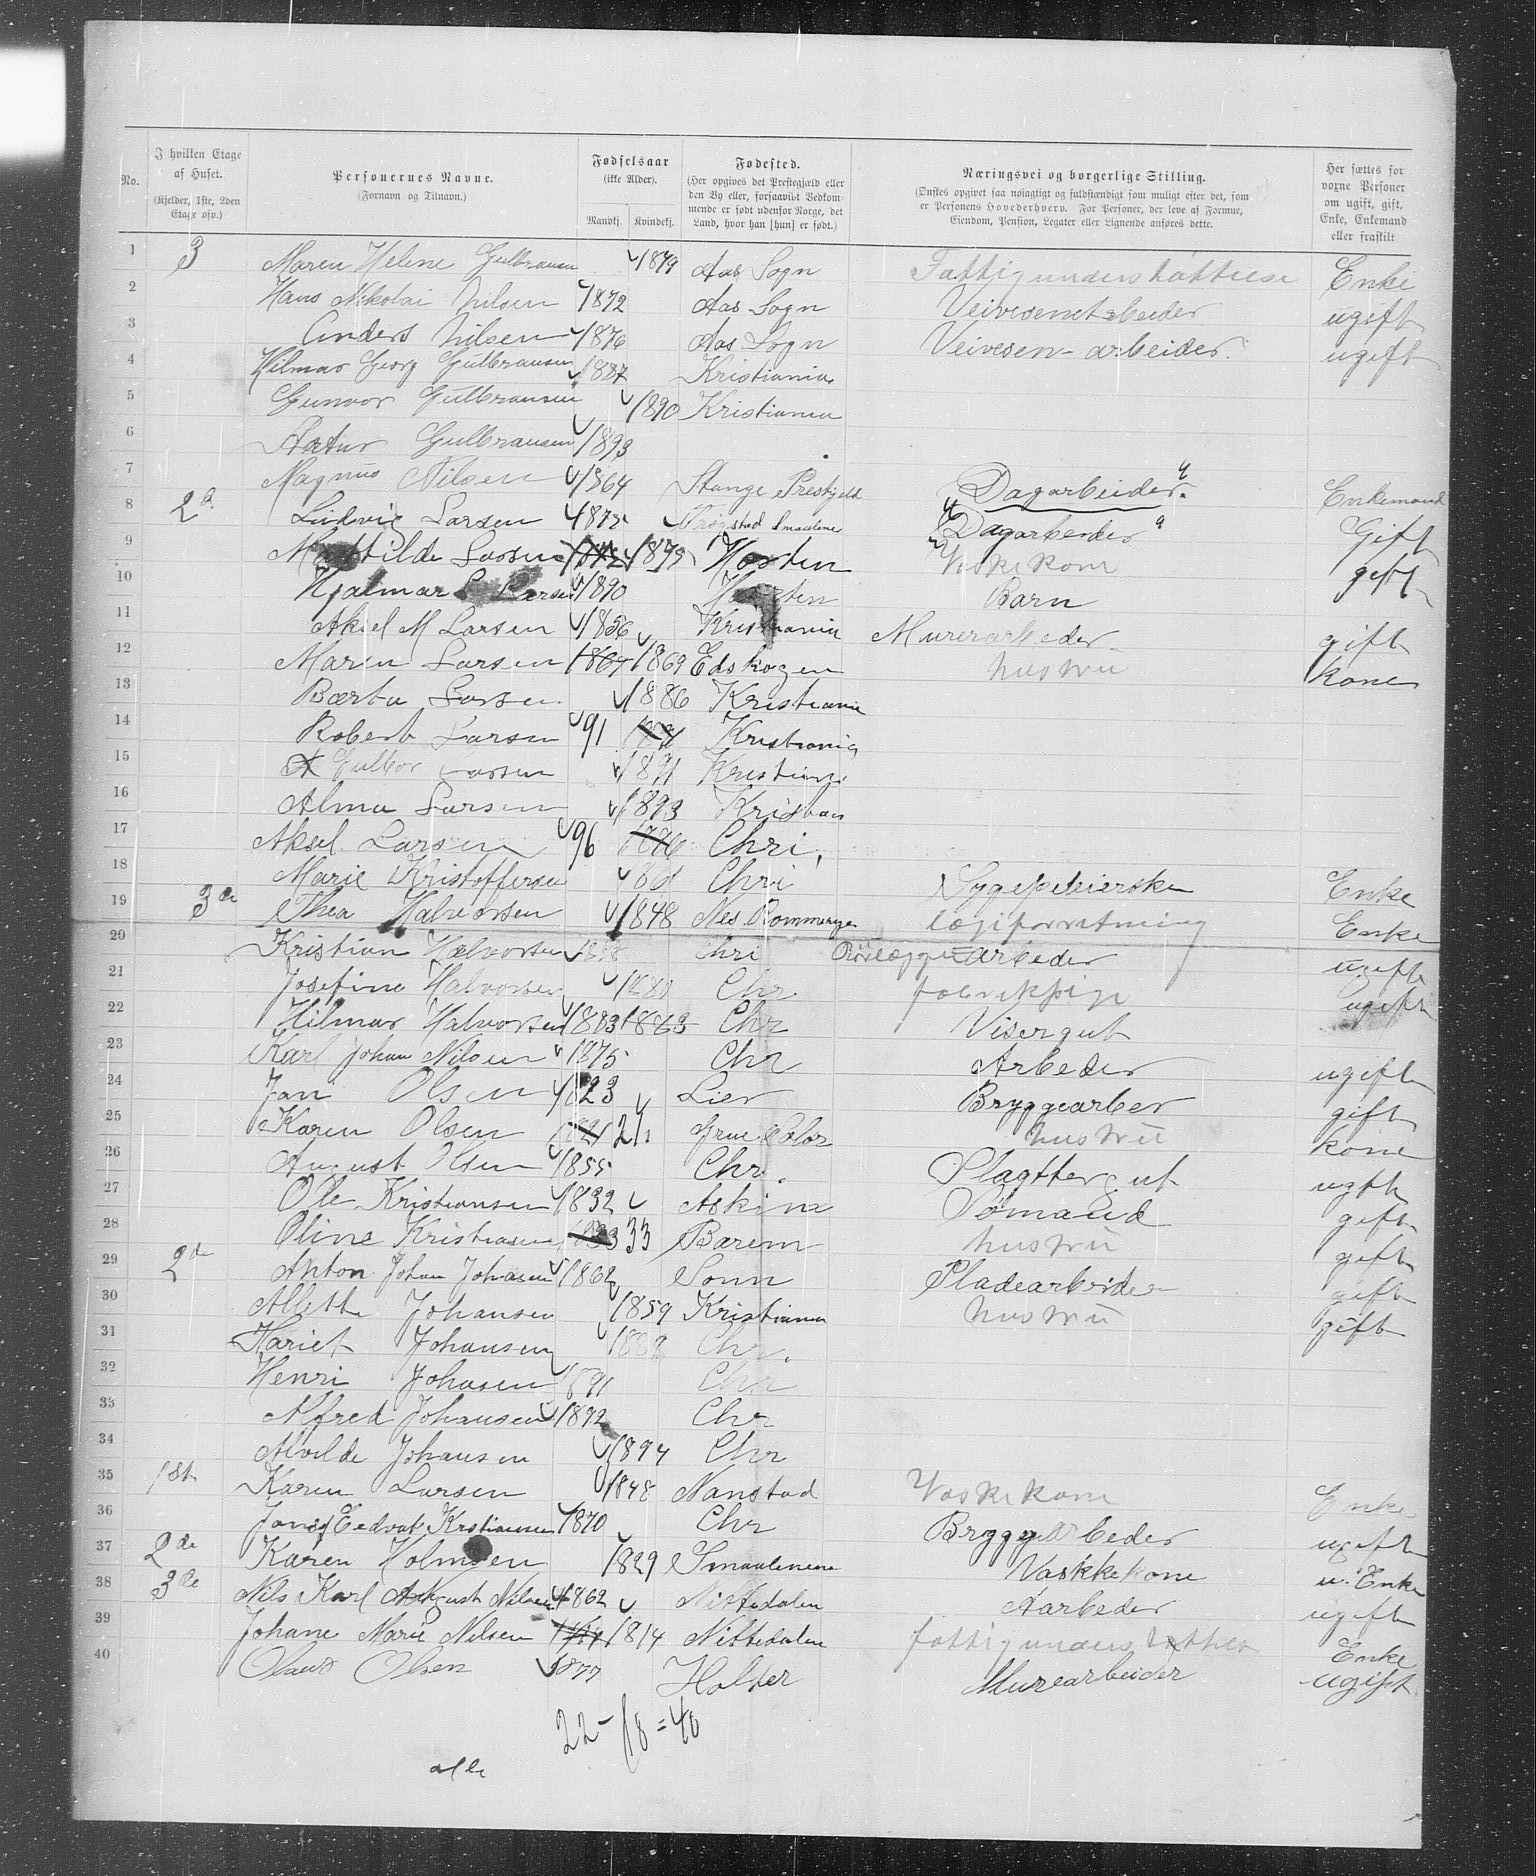 No.
I hvilken Etage af Huset.
(Kjelder, 1ste, 2den Etage osv.)
Personernes Navne.
(Fornavn og Tilnavn.)
Fødselsaar
(ikke Alder).
Mandkj. Kvindekj.
Fødested.
(Her opgives det Prestegjæld eller den By eller, forsaavidt Vedkommende er født udenfor Norge, det Land, hvor han [hun] er født.)
Næringsvei og borgerlige Stilling.
(Ønskes opgivet saa nøiagtigt og fuldstændigt som muligt efter det, som er Personens Hovederhverv. For Personer, der leve af Formue, Eiendom, Pension, Legater eller Lignende anføres dette.
Her sættes for voxne Personer om ugift, gift, Enke, Enkemand eller fraskilt
1 3 Maren Helene Gulbransen 1849 Aas Sogn Enke
2 Hans Nikolai Nilsen 1872 Aas Sogn ugift
3 Anders Nilsen 1876 Aas Sogn Veivesen-arbeider. ugift
4 Hilmar Georg Gulbransen 1887 Kristiania
5 Gunvor Gulbransen 1890 Kristiania
6 Artur Gulbransen 1893
7 Magnus Nilsen 1864 Stange Prestgjeld Dagarbeider. Enkemand
8 2d Ludvig Larsen 1875 Smaalene Dagarbeider Gift
9 Larsen 1875 Horten Vaskekone gift
10 Hjalmar Larsen 1890 Horten Barn
11 Aksel M Larsen 1856 Kristiania Murerarbeder gift
12 Maren Larsen 1867 1869 Edskogen hustru kone
13 Barta Larsen 1886 Kristiania
14 Robert Larsen 91 Kristiania
15 Larsen 1891 Kristiania
16 Alma Larsen 1893
17 Aksel Larsen 96 1896 Chri.
18 Marie Kristoffersen Chri Sygepleierske Enke
19 3de Thea Halvorsen 1848 Nes Rommerige Enke
20 Kristian Halvorsen Chri arbeder ugift
21 Josefine Halvorsen Chr fabrikpige ugift
22 Hilmar Halvorsen 1883 1883 Chr Visergut
23 Karl Johan Nilsen 1875 Chr Arbeder ugift
24 Jan Olsen 1823 Lier Bryggearber gift
25 Karen Olsen 24 Grue hustru kone
26 August Olsen 1855 Chr. ugift
27 Ole Kristiansen 1832 Askim Sømand gift
28 Oline Kristiansen 33 Barem hustru gift
29 2de Anton Johan Johansen 1862 Sonn Pladearbeider gift
30 Allett Johansen 1859 Kristiania hustru gift
31 Hariet Johansen Chr.
32 Henri Johasen 1891 Chr
33 Alfred Johansen 1892 Chr
34 Alvilde Johansen 1894 Chr
35 1st Karen Larsen 1848 Nanstad Vaskekone Enke
36 Edvat Kristiansen 1870 Chr Bryggearbeder ugift
37 2de Karen Holmsen 1829 Smaalenene Vaskkekone u. Enke
38 3de Nils Karl August Nilsen 1862 Nittedalen Aarbeder ugift
39 Johane Marie Nilsen 1814 Nittedalen Enke
40 Olaus Olsen 1877 Holter Murearbeider ugift
22-18=40
alle